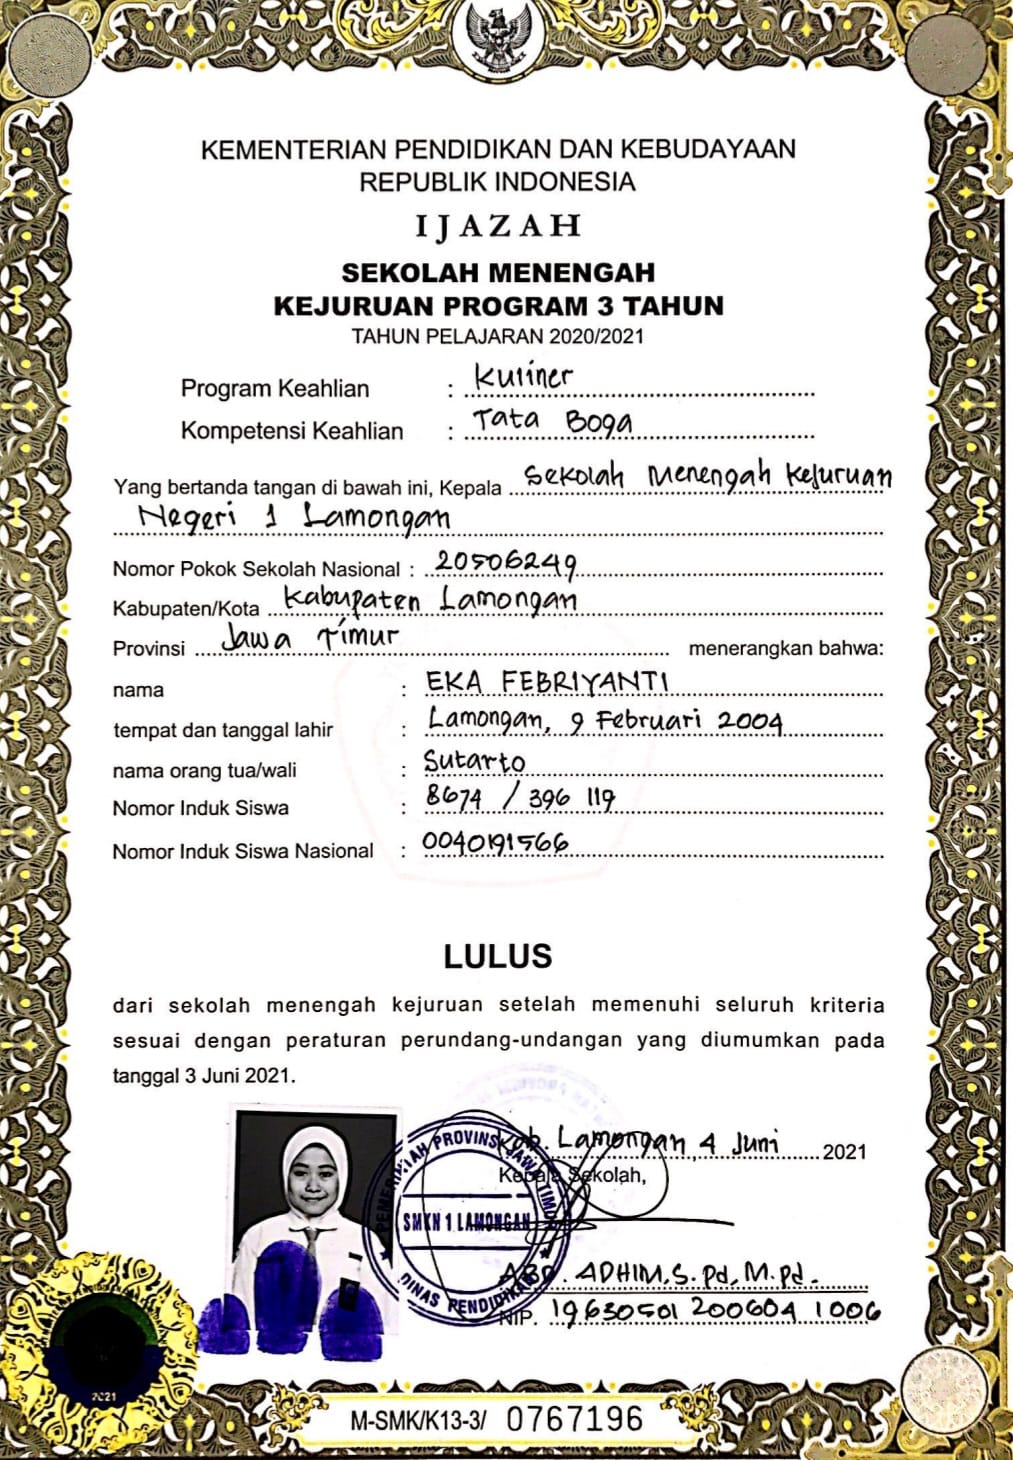 KEMENTERIAN PENDIDIKAN DAN KEBUDAYAAN
REPUBLIK INDONESIA
IJAZAH
SEKOLAH MENENGAH
KEJURUAN PROGRAM 3 TAHUN
TAHUN PELAJARAN 2020/2021
Program Keahlian : Kuliner
Kompetensi Keahlian : Tata Boga
Yang bertanda tangan di bawah ini, Kepala Sekolah Menengah Kejuruan
Negeri 1 Lamongan
Nomor Pokok Sekolah Nasional : 20506249
Kabupaten/Kota Kabupaten Lamongan
Provinsi Jawa Timur menerangkan bahwa:
nama : EKA FEBRIYANTI
tempat dan tanggal lahir : Lamongan, 9 Februari 2004
nama orang tua/wali : Sutarto
Nomor Induk Siswa : 8674 / 396 119
Nomor Induk Siswa Nasional : 0040191566
LULUS
dari sekolah menengah kejuruan setelah memenuhi seluruh kriteria
sesuai dengan peraturan perundang-undangan yang diumumkan pada
tanggal 3 Juni 2021.
Kab. Lamongan, 4 Juni 2021
Kepala Sekolah,
PEMERINTAH PROVINSI JAWA TIMUR
SMKN 1 LAMONGAN
DINAS PENDIDIKAN
ABD. ADHIM, S.Pd, M.Pd.
NIP. 19630501 200604 1 006
2021
M-SMK/K13-3/ 0767196